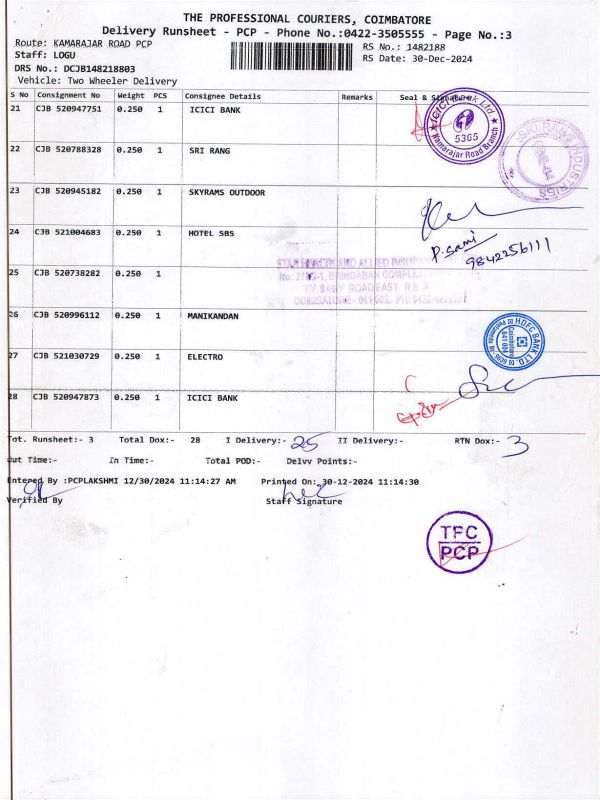 THE PROFESSIONAL COURIERS, COIMBATORE
Delivery Runsheet - PCP - Phone No.:0422-3505555 - Page No.:3
Route: KAMARAJAR ROAD PCP
RS No.: 1482188
Staff: LOGU
RS Date: 30-Dec-2024
DRS No.: DCJB148218803
Vehicle: Two Wheeler Delivery
S No Consignment No Weight PCS Consignee Details Remarks Seal & Signature
21 CJB 520947751 0.250 1 ICICI BANK
ICICI Bank Ltd
5365
Kamarajar Road Branch
22 CJB 520788328 0.250 1 SRI RANG
INDUSTRIES
23 CJB 520945182 0.250 1 SKYRAMS OUTDOOR
24 CJB 521004683 0.250 1 HOTEL SBS
P. Sami
9842256111
STAR HEALTH AND ALLIED
25 CJB 520738282 0.250 1
26 CJB 520996112 0.250 1 MANIKANDAN
HDFC BANK LTD.
Coimbatore
27 CJB 521030729 0.250 1 ELECTRO
28 CJB 520947873 0.250 1 ICICI BANK
Tot. Runsheet:- 3 Total Dox:- 28 I Delivery:- 25 II Delivery:- RTN Dox:- 3
Out Time:- In Time:- Total POD:- Delvv Points:-
Entered By :PCPLAKSHMI 12/30/2024 11:14:27 AM Printed On: 30-12-2024 11:14:30
Verified By Staff Signature
TPC
PCP